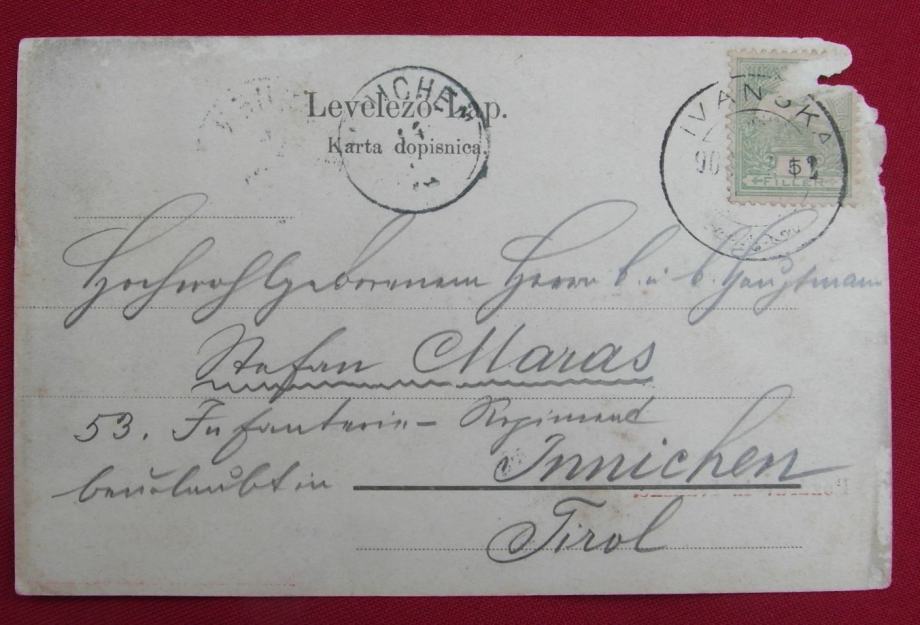 Levelező-Lap.
Karta dopisnica.
IVANSKA
5
FILLER
Hochwohlgeborenem Herrn k. u. k. Hauptmann
Stefan Maras
53. Infanterie- Regiment
beurlaubt in Innichen
Tirol